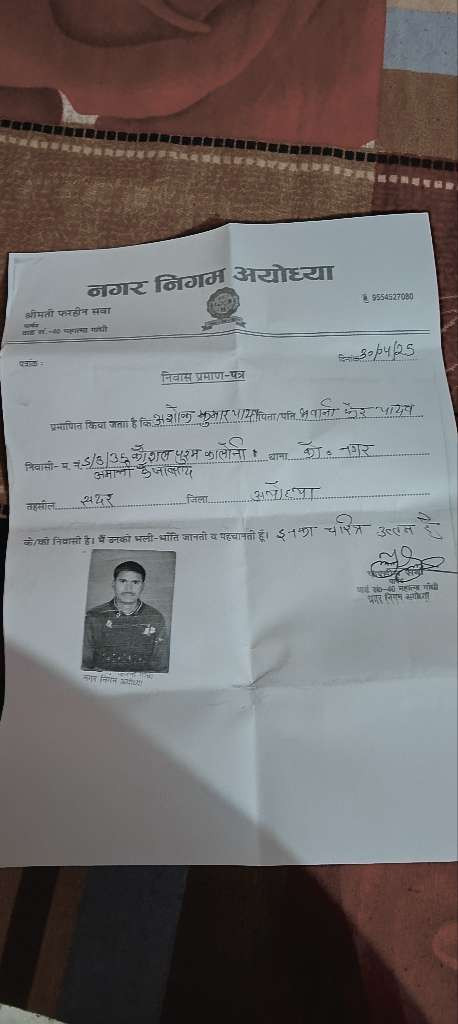 नगर निगम अयोध्या
श्रीमती फरहीन सबा
पार्षद
वार्ड सं.-40 महात्मा गांधी
9554527080
पत्रांक :
दिनांक 30/04/25
निवास प्रमाण-पत्र
प्रमाणित किया जाता है कि अशोक कुमार यादव पिता/पति भवानी फेर यादव
निवासी- म. नं 5/3/35 कौशल पुरम कालोनी थाना को० नगर
अमानी
तहसील सदर जिला अयोध्या
के/की निवासी है। मैं उनको भली-भाँति जानती व पहचानती हूँ। इनका चरित्र उत्तम है
पार्षद
वार्ड सं0-40 महात्मा गांधी
नगर निगम अयोध्या
नगर निगम अयोध्या